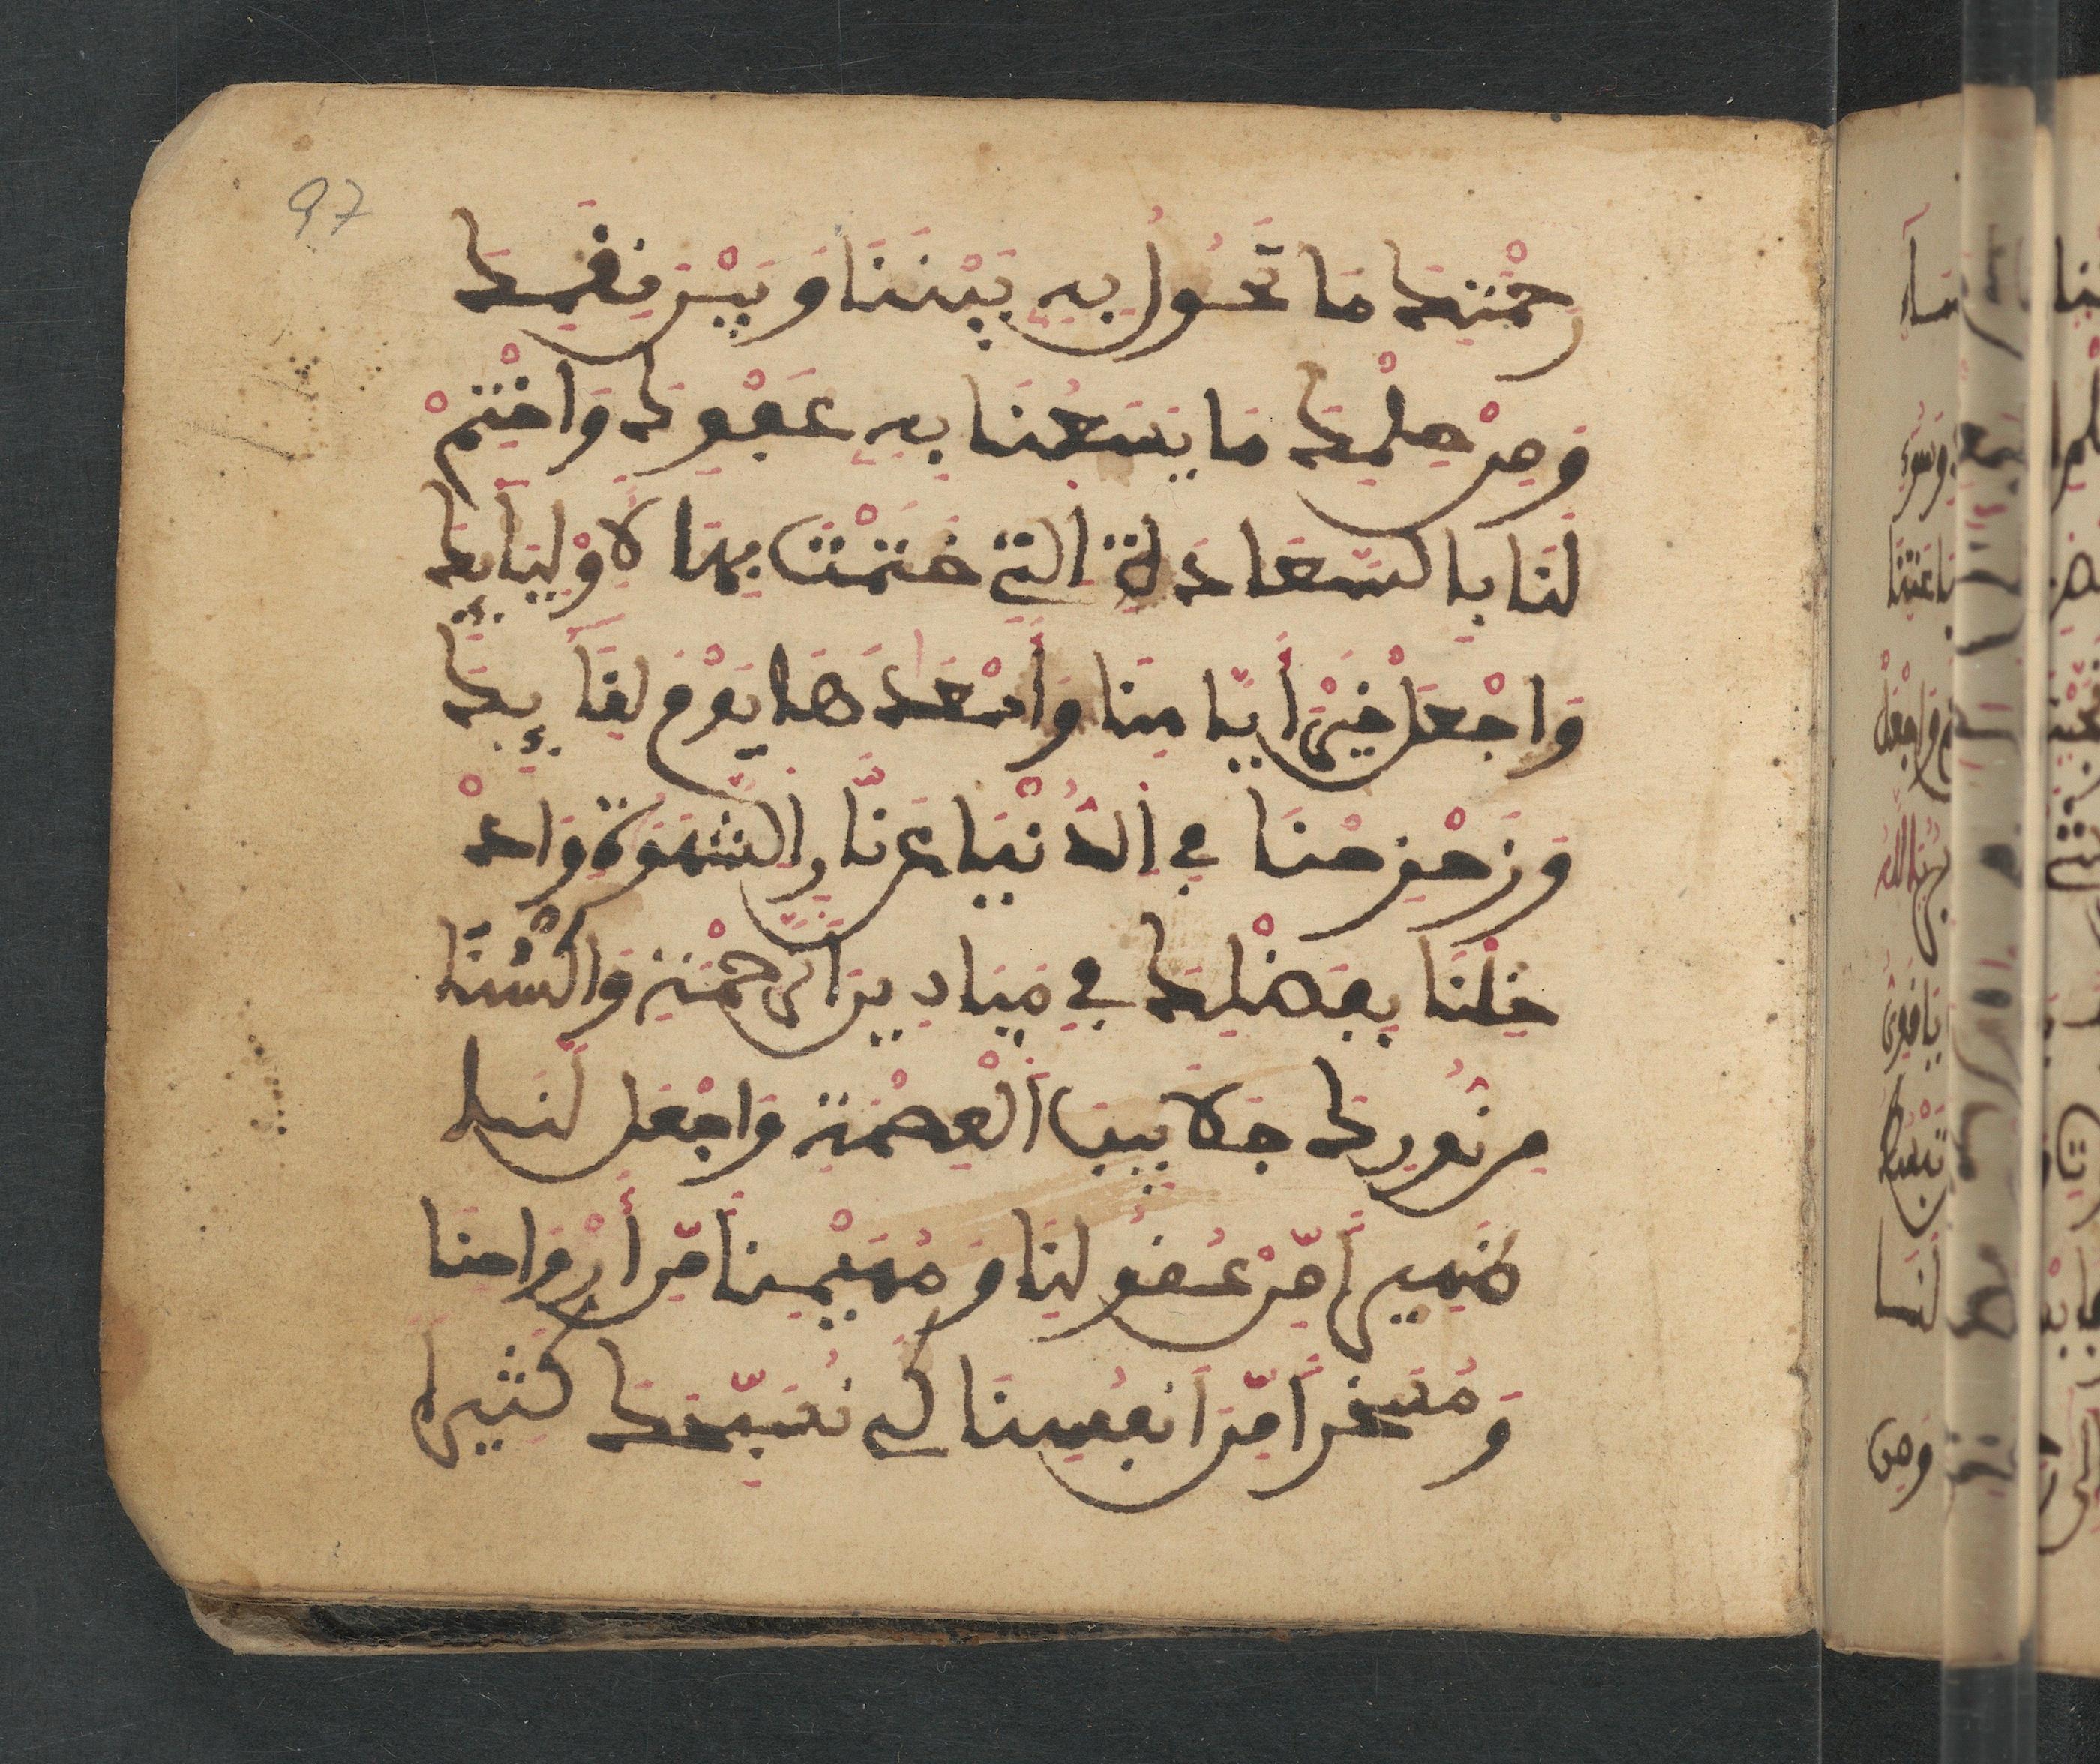 97
رَحْمَتِكَ مَا تَحُولُ بِهِ بَيْنَنَا وَبَيْنَ نِقَمِكَ
وَمِنْ حِلْمِكَ مَا يَسَعُنَا بِهِ عَفْوُكَ وَاخْتِمْ
لَنَا بِالسَّعَادَةِ الَّتِي خَتَمْتَ بِهَا لِأَوْلِيَائِكَ
وَاجْعَلْ خَيْرَ أَيَّامِنَا وَأَسْعَدَهَا يَوْمَ لِقَائِكَ
وَزَحْزِحْنَا فِي الدُّنْيَا عَن نَّارِ الشَّهْوَةِ وَادْ
خِلْنَا بِفَضْلِكَ فِي مَيَادِينِ الرَّحْمَةِ وَاكْسُنَا
مِن نُورِكَ جَلَابِيبَ الْعِصْمَةِ وَاجْعَل لَّنَا
ظَهِيرًا مِّنْ عُقُولِنَا وَمُهَيْمِنًا مِّنْ أَرْوَاحِنَا
وَمُسَخِّرًا مِّنْ أَنفُسِنَا كَيْ نُسَبِّحَكَ كَثِيرًا